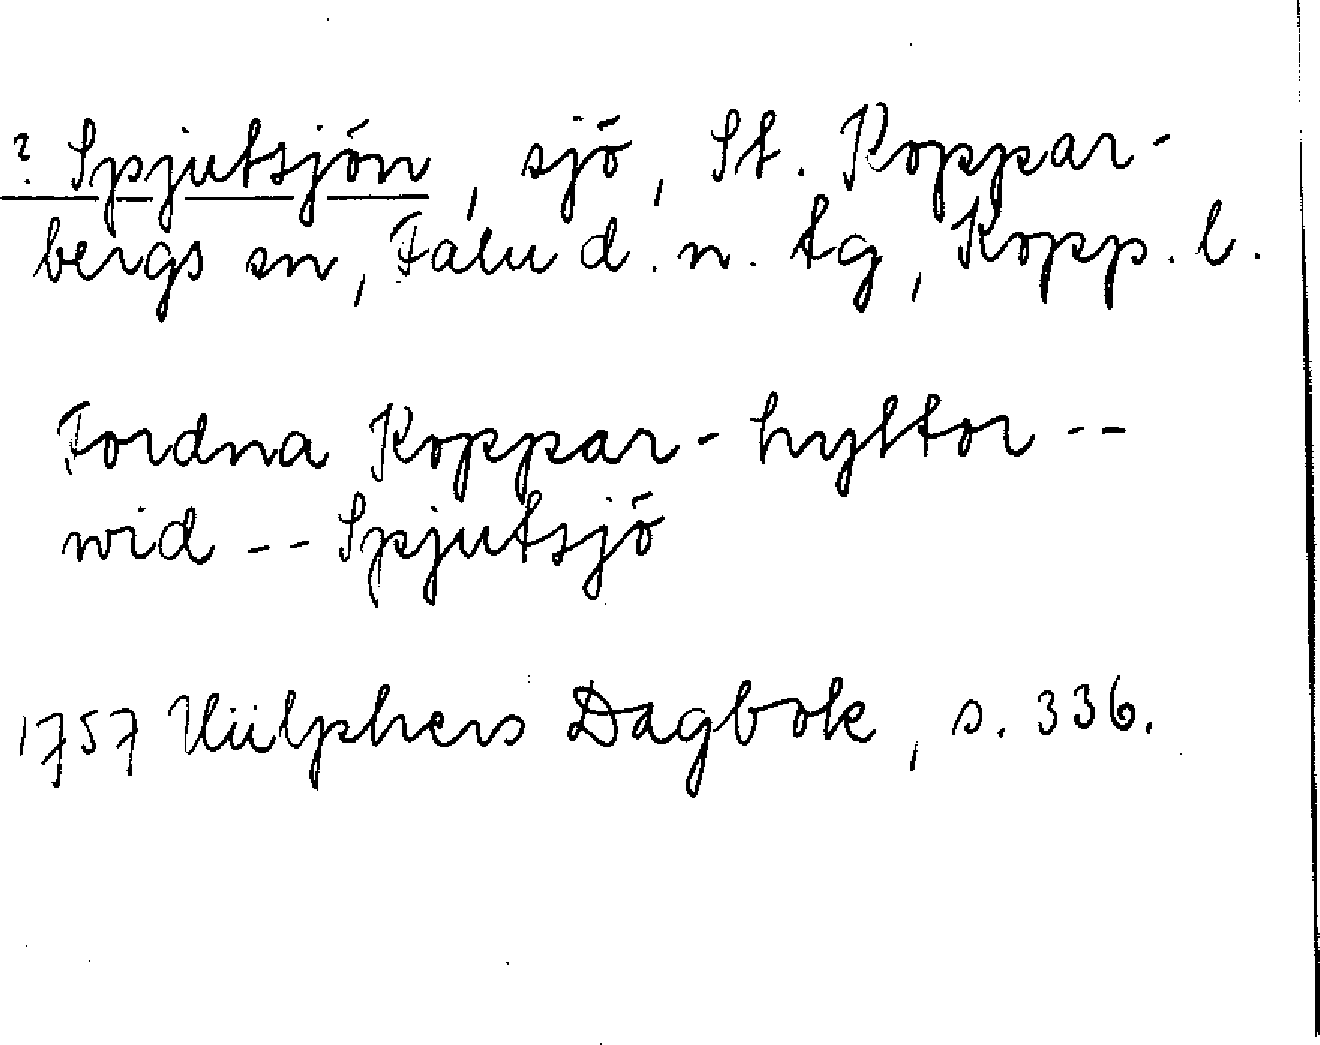 ? Spjutsjön, sjö, St. Koppar-
bergs sn, Falu d. n. tg, Kopp. l.
Fordna Koppar-hyttor --
wid -- Spjutsjö
1757 Hülphers Dagbok, s. 336.